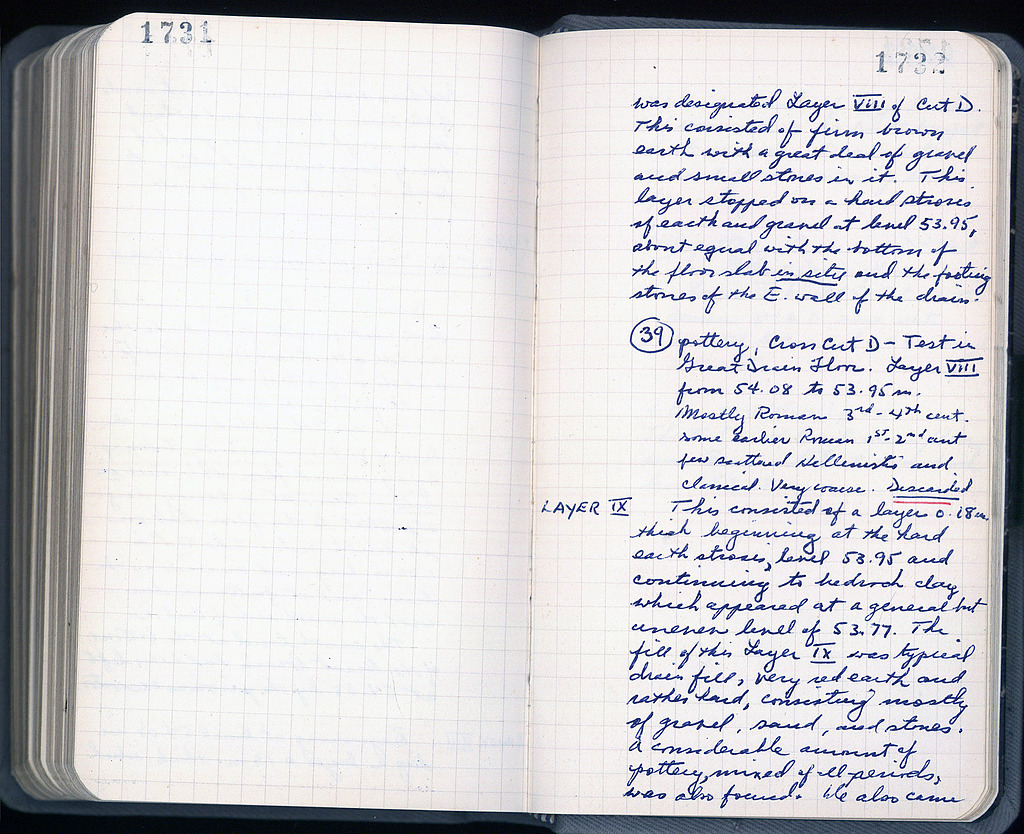 1731
1732
was designated Layer VIII of Cut D.
This consisted of firm brown
earth with a great deal of gravel
and small stones in it. This
layer stopped on a hard strosis
of earth and gravel at level 53.95,
about equal with the bottom of
the floor slab in situ and the footing
stones of the E. wall of the drain.
39 pottery, Cross Cut D - Test in
Great Drain Floor. Layer VIII
from 54.08 to 53.95 m.
Mostly Roman 3rd - 4th cent.
some earlier Roman 1st - 2nd cent
few scattered Hellenistic and
classical. Very coarse. Discarded
LAYER IX This consisted of a layer 0.18 m.
thick beginning at the hard
earth strosis, level 53.95 and
continuing to bedrock clay
which appeared at a general but
uneven level of 53.77. The
fill of this Layer IX was typical
drain fill, very red earth and
rather hard, consisting mostly
of gravel, sand, and stones.
A considerable amount of
pottery, mixed of all periods,
was also found. We also came